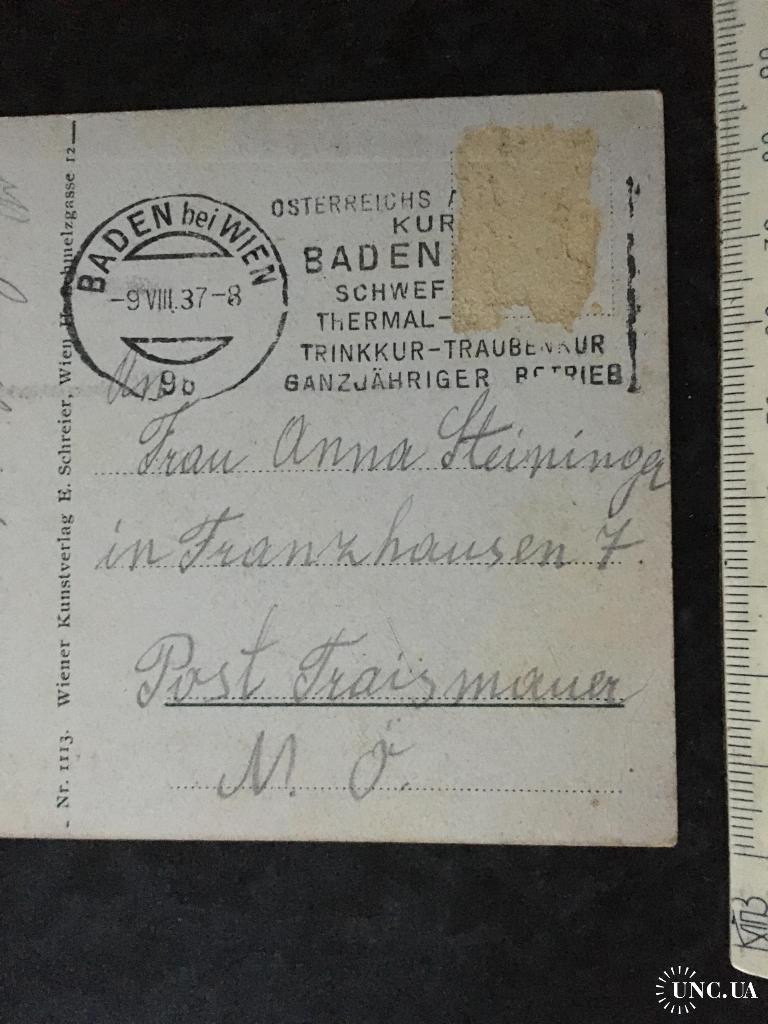 BADEN bei WIEN
-9.VIII.37-8
9b
ÖSTERREICHS
KUR
BADEN
SCHWEF
THERMAL-
TRINKKUR-TRAUBENKUR
GANZJÄHRIGER BETRIEB
An
Frau Anna Steininger
in Franzhausen 7.
Post Traismauer
N. Ö.
- Nr. 1113. Wiener Kunstverlag E. Schreier, Wien schmelzgasse 12
UNC.UA